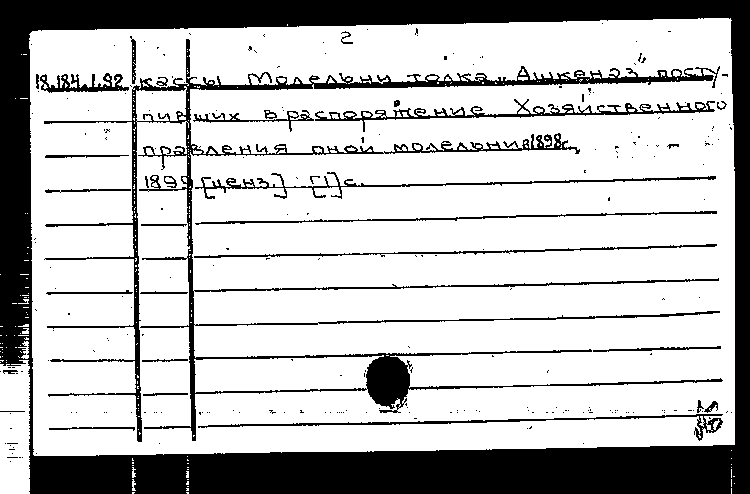 2
18.184.1.92 кассы Молельни толка „Ашкеназ", посту-
пивших в распоряжение Хозяйственного
правления оной молельни в 1898г.,
1899 [ценз.] [1] с.